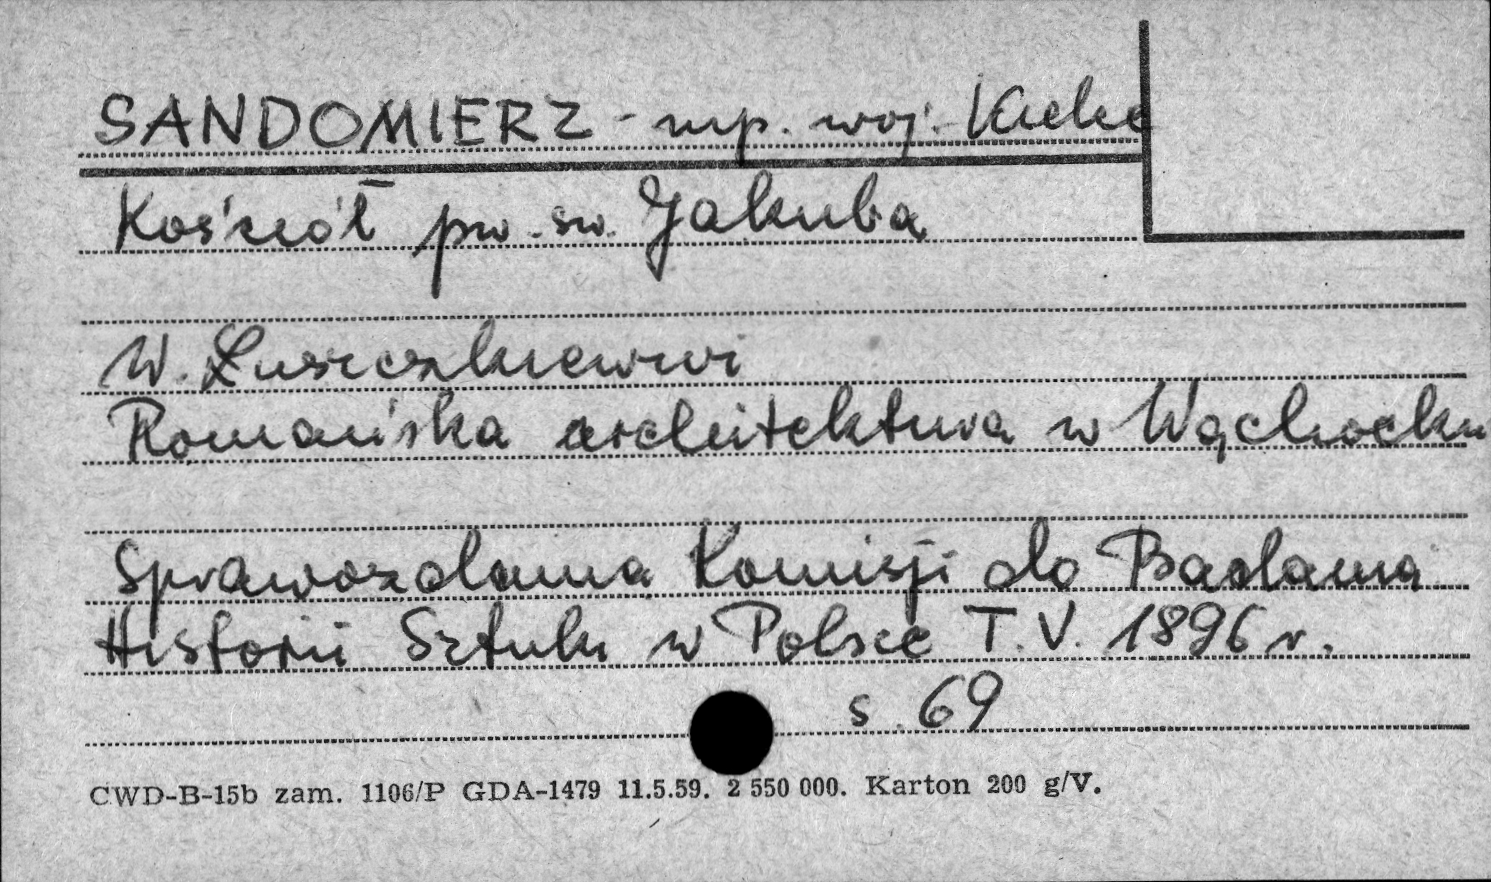 SANDOMIERZ - mp. woj. Kielce
Kościół pw. św. Jakuba
W. Łuszczkiewicz
Romańska architektura w Wąchocku
Sprawozdania Komisji do Badania
Historii Sztuki w Polsce T.V. 1896 r.
s. 69
CWD-B-15b zam. 1106/P GDA-1479 11.5.59. 2 550 000. Karton 200 g/V.